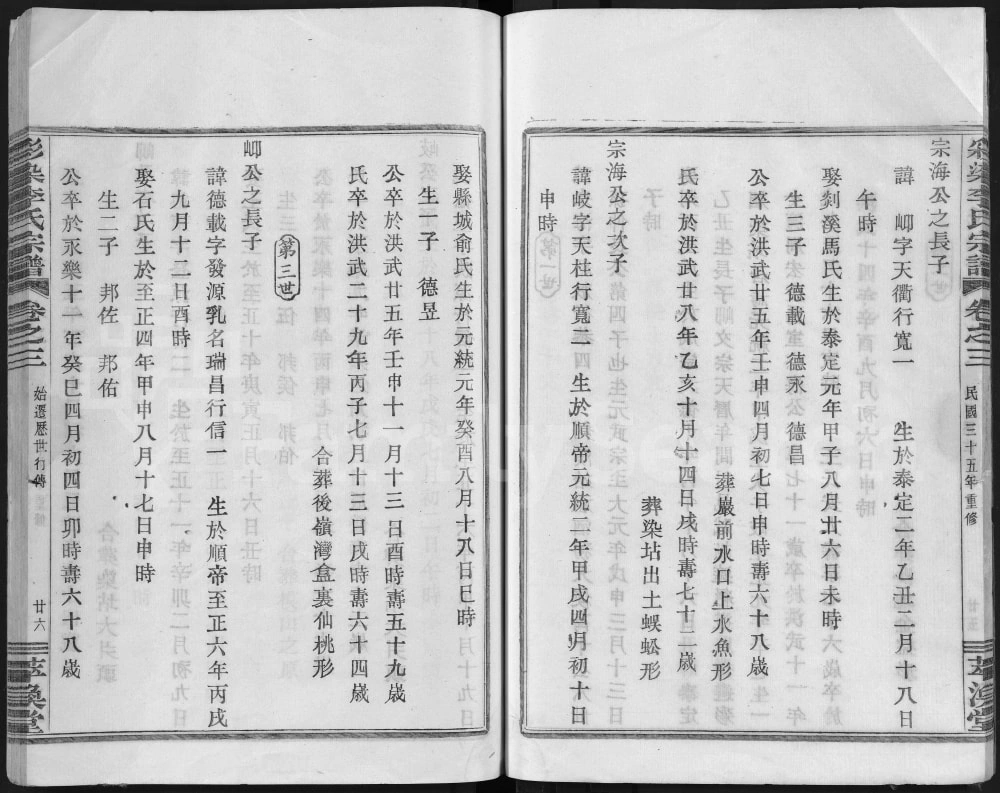 宗海公之長子
諱 岫字天衢行寬一 生於泰定二年乙丑二月十八日
午時
娶剡溪馬氏生於泰定元年甲子八月廿六日未時
生三子 德載 室德永公 德昌
公卒於洪武廿五年壬申四月初七日申時壽六十八歲
葬巖前水口上水魚形
氏卒於洪武廿八年乙亥十月十四日戌時壽七十二歲
葬染坫出土蜈蚣形
宗海公之次子
諱岐字天柱行寬二 生於順帝元統二年甲戌四月初十日
申時
民國三十五年重修
卷之三
娶縣城俞氏生於元統元年癸酉八月十八日巳時
生一子 德昱
公卒於洪武廿五年壬申十一月十三日酉時壽五十九歲
合葬後嶺灣盒裏仙桃形
氏卒於洪武二十九年丙子七月十三日戌時壽六十四歲
第三世
岫公之長子
諱德載字發源乳名瑞昌行信一 生於順帝至正六年丙戌
九月十二日酉時
娶石氏生於至正四年甲申八月十七日申時
生二子 邦佐 邦佑
公卒於永樂十一年癸巳四月初四日卯時壽六十八歲
李氏宗譜 卷之三 始遷歷世行傳 廿六 萃渙堂